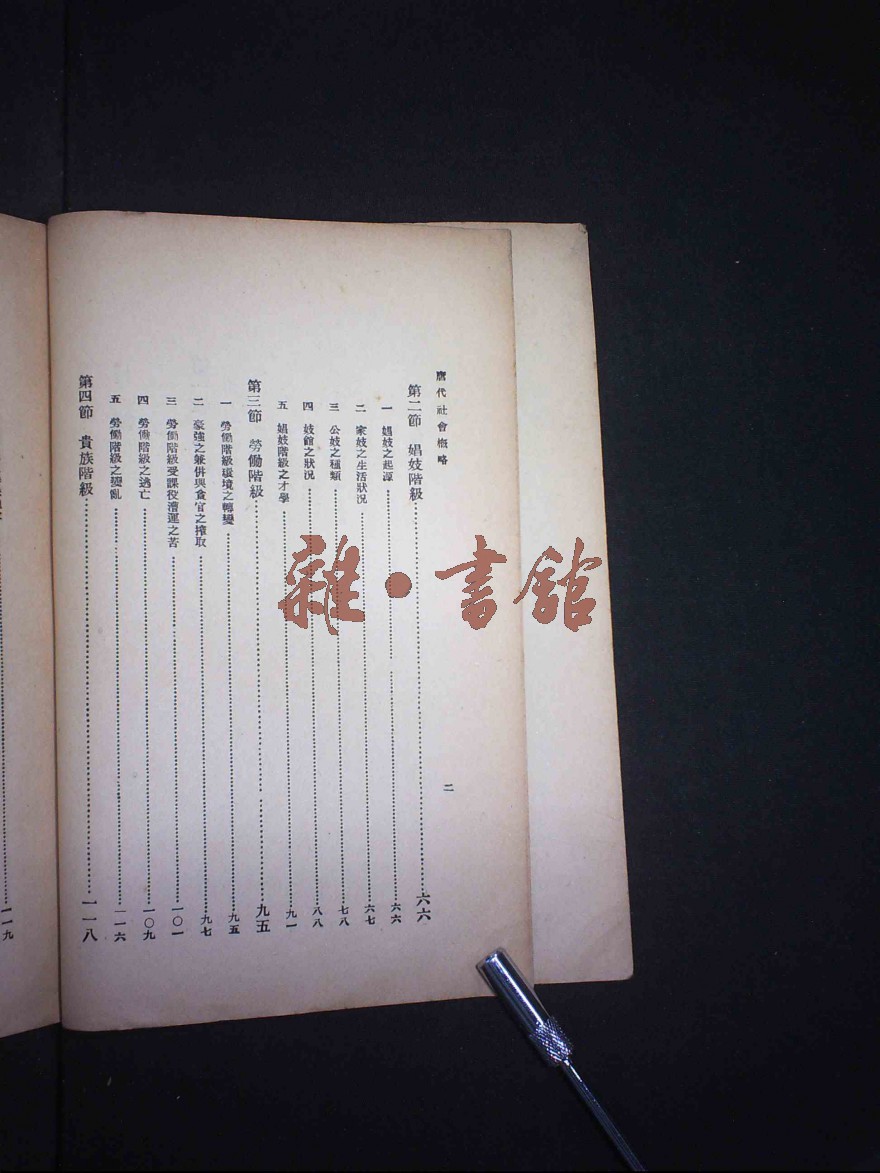 唐代社會概略
二
第二節 娼妓階級……六六
一 娼妓之起源……六六
二 家妓之生活狀況……六七
三 公妓之種類……七八
四 妓館之狀況……八八
五 娼妓階級之才學……九一
第三節 勞働階級……九五
一 勞働階級環境之轉變……九五
二 豪強之兼併與貪官之搾取……九七
三 勞働階級受課役漕運之苦……一〇一
四 勞働階級之逃亡……一〇九
五 勞働階級之變亂……一一六
第四節 貴族階級……一一八
一一九
雜·書館